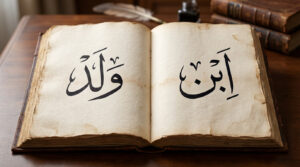 اِبْن
وَلَدْ